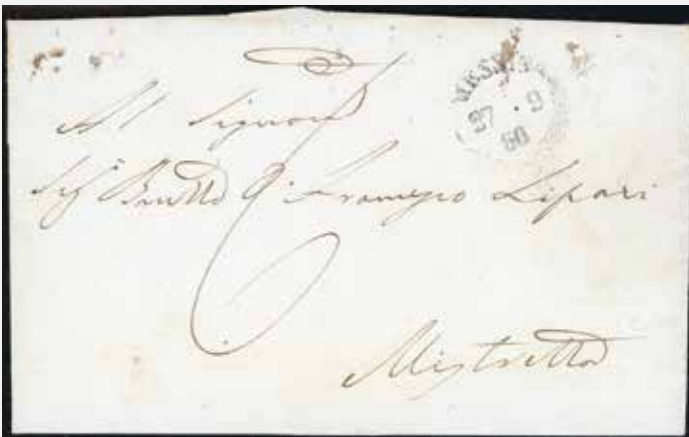 MESSINA
27 . 9
60
Al Signore
Sig.r D. Francesco Lipari
Mistretta